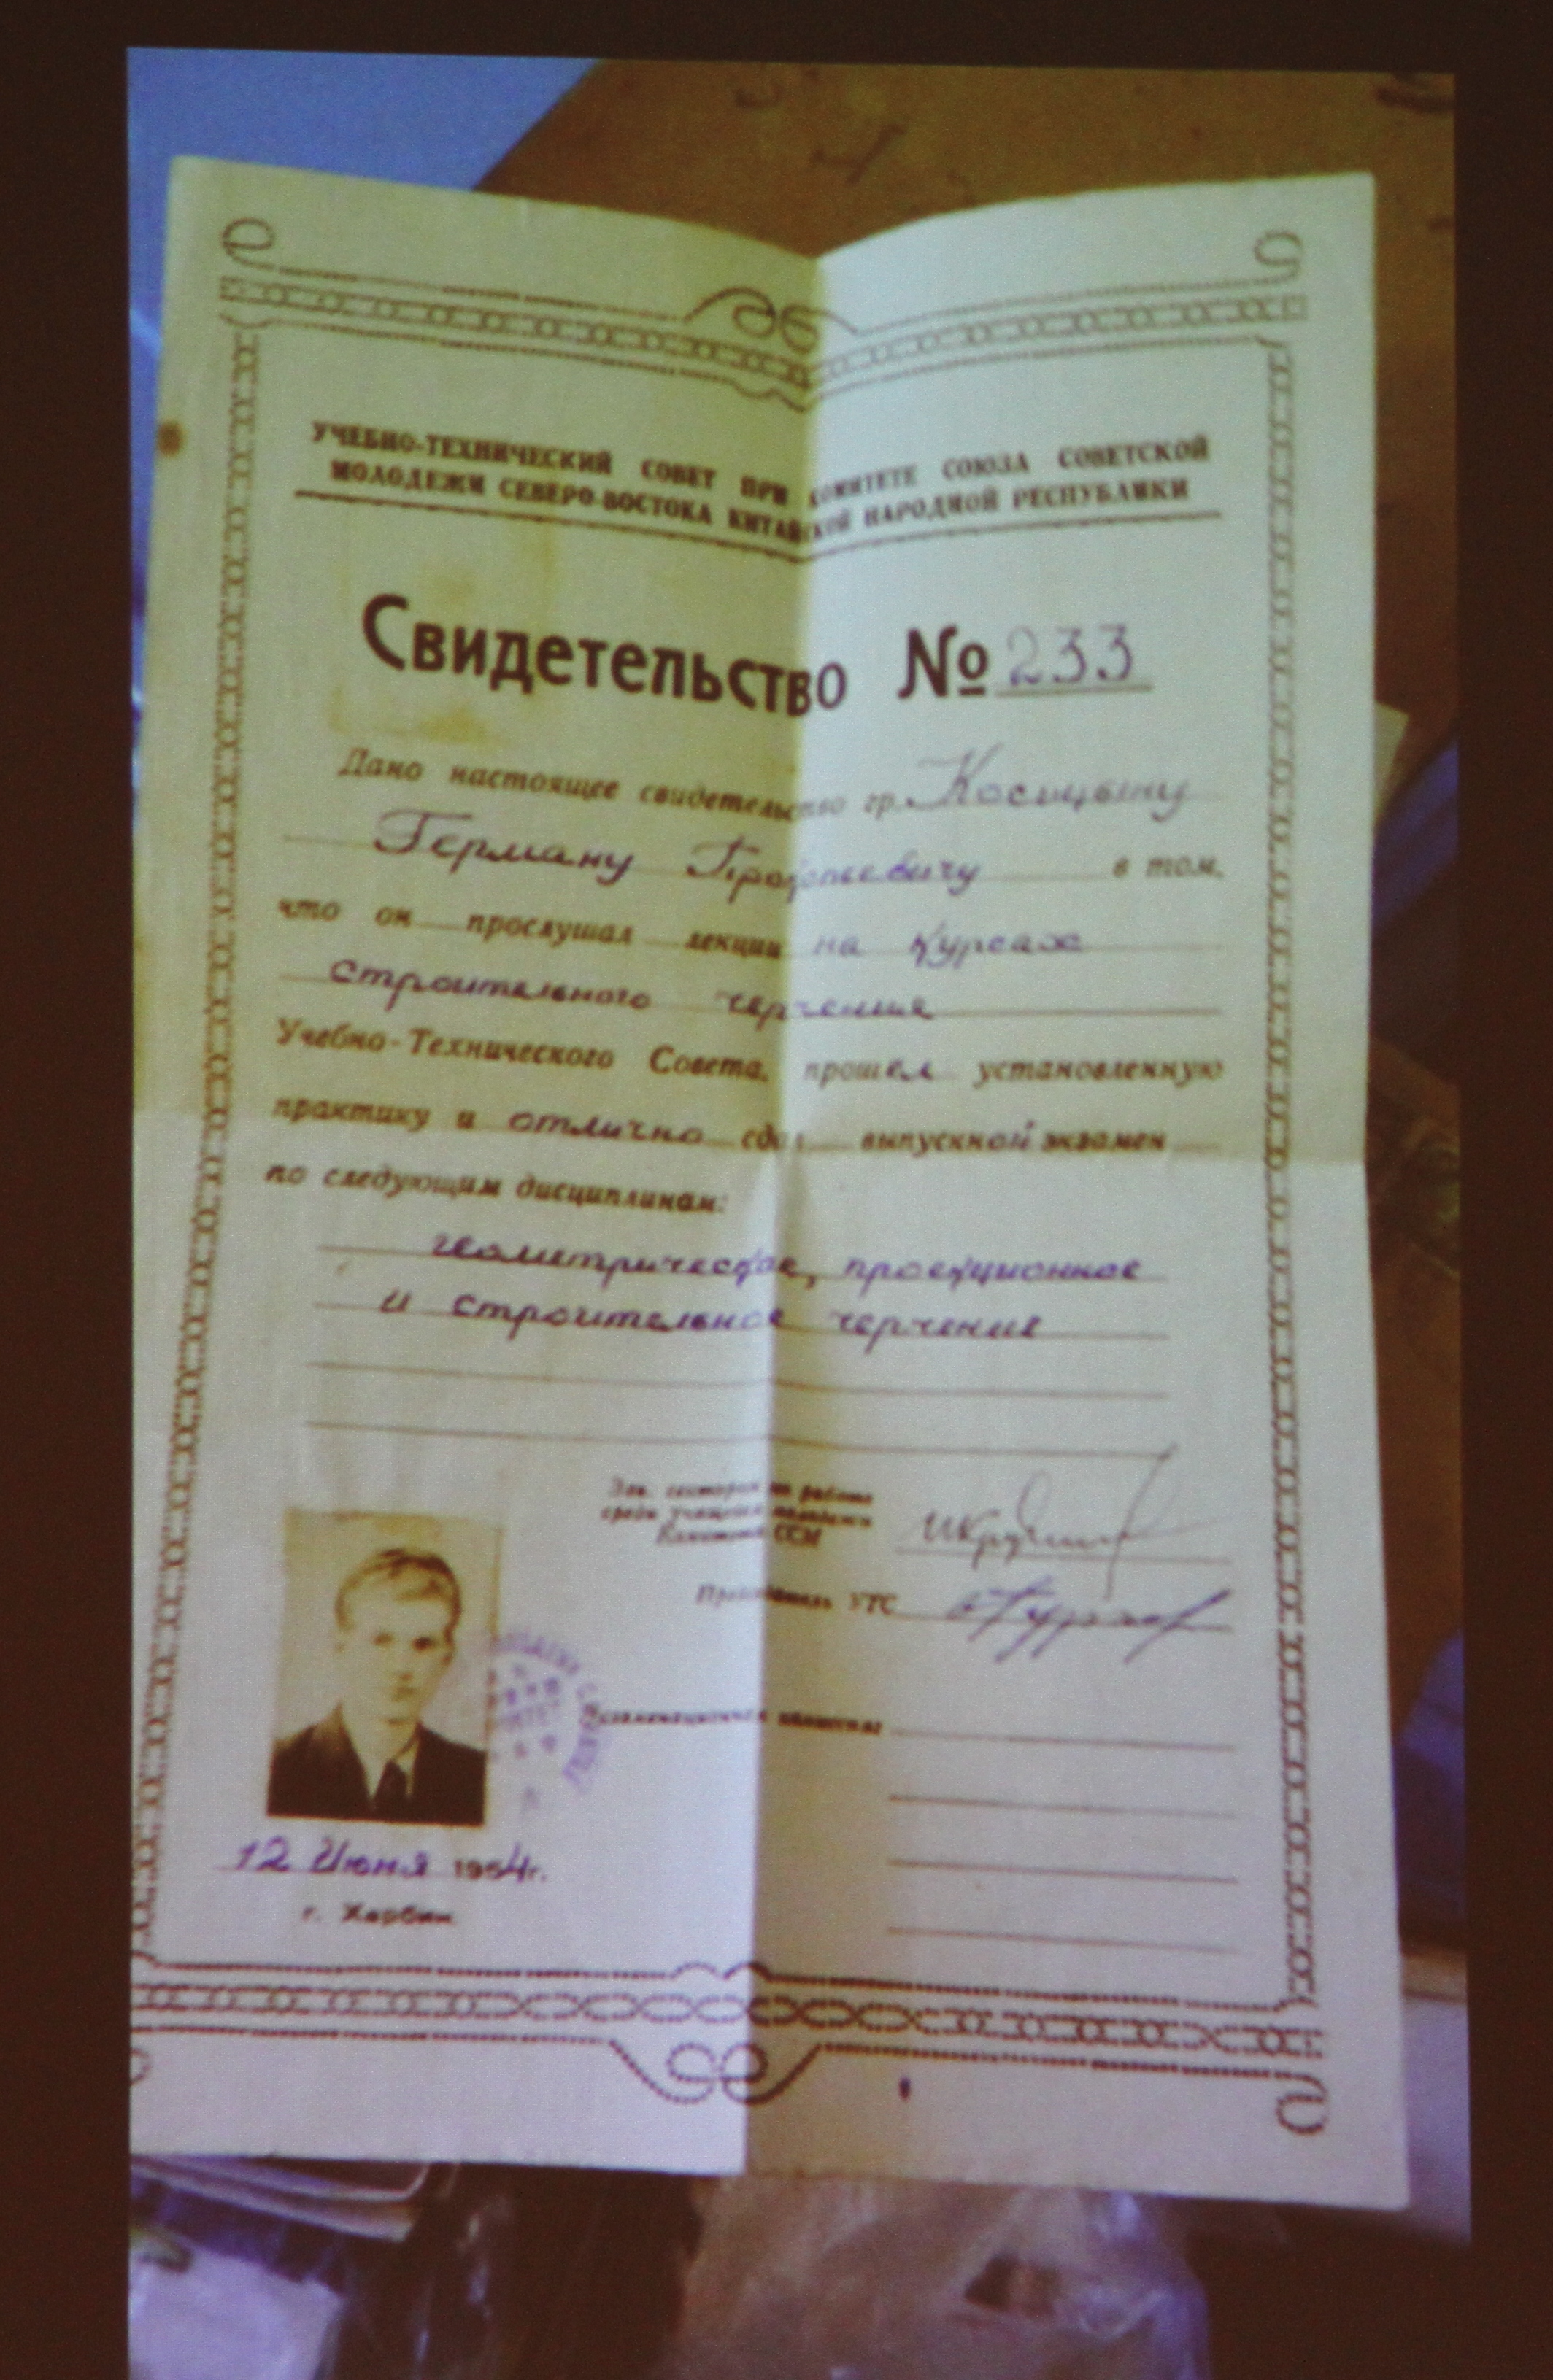 УЧЕБНО-ТЕХНИЧЕСКИЙ СОВЕТ ПРИ КОМИТЕТЕ СОЮЗА СОВЕТСКОЙ
МОЛОДЕЖИ СЕВЕРО-ВОСТОКА КИТАЙСКОЙ НАРОДНОЙ РЕСПУБЛИКИ
Свидетельство № 233
Дано настоящее свидетельство гр. Косицыну
Герману Прокопьевичу в том,
что он прослушал лекции на курсах
строительного черчения
Учебно-Технического Совета, прошел установленную
практику и отлично сдал выпускной экзамен
по следующим дисциплинам:
геометрическое, проекционное
и строительное черчение
Зав. сектором по работе
среди учащейся молодежи
Комитета ССМ
Председатель УТС
Экзаменационная комиссия:
12 Июня 1954г.
г. Харбин